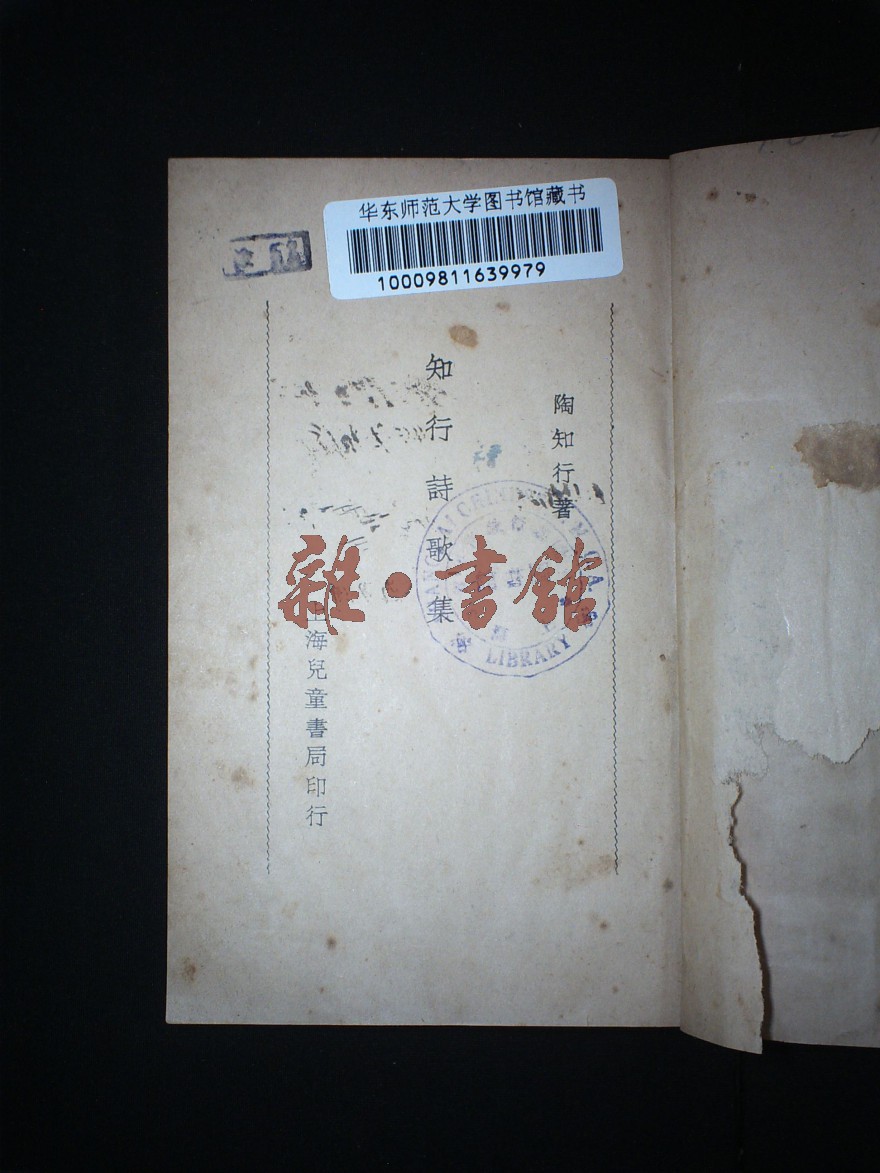 华东师范大学图书馆藏书
10009811639979
陶知行著
知行詩歌集
上海兒童書局印行
雜·書館
LIBRARY